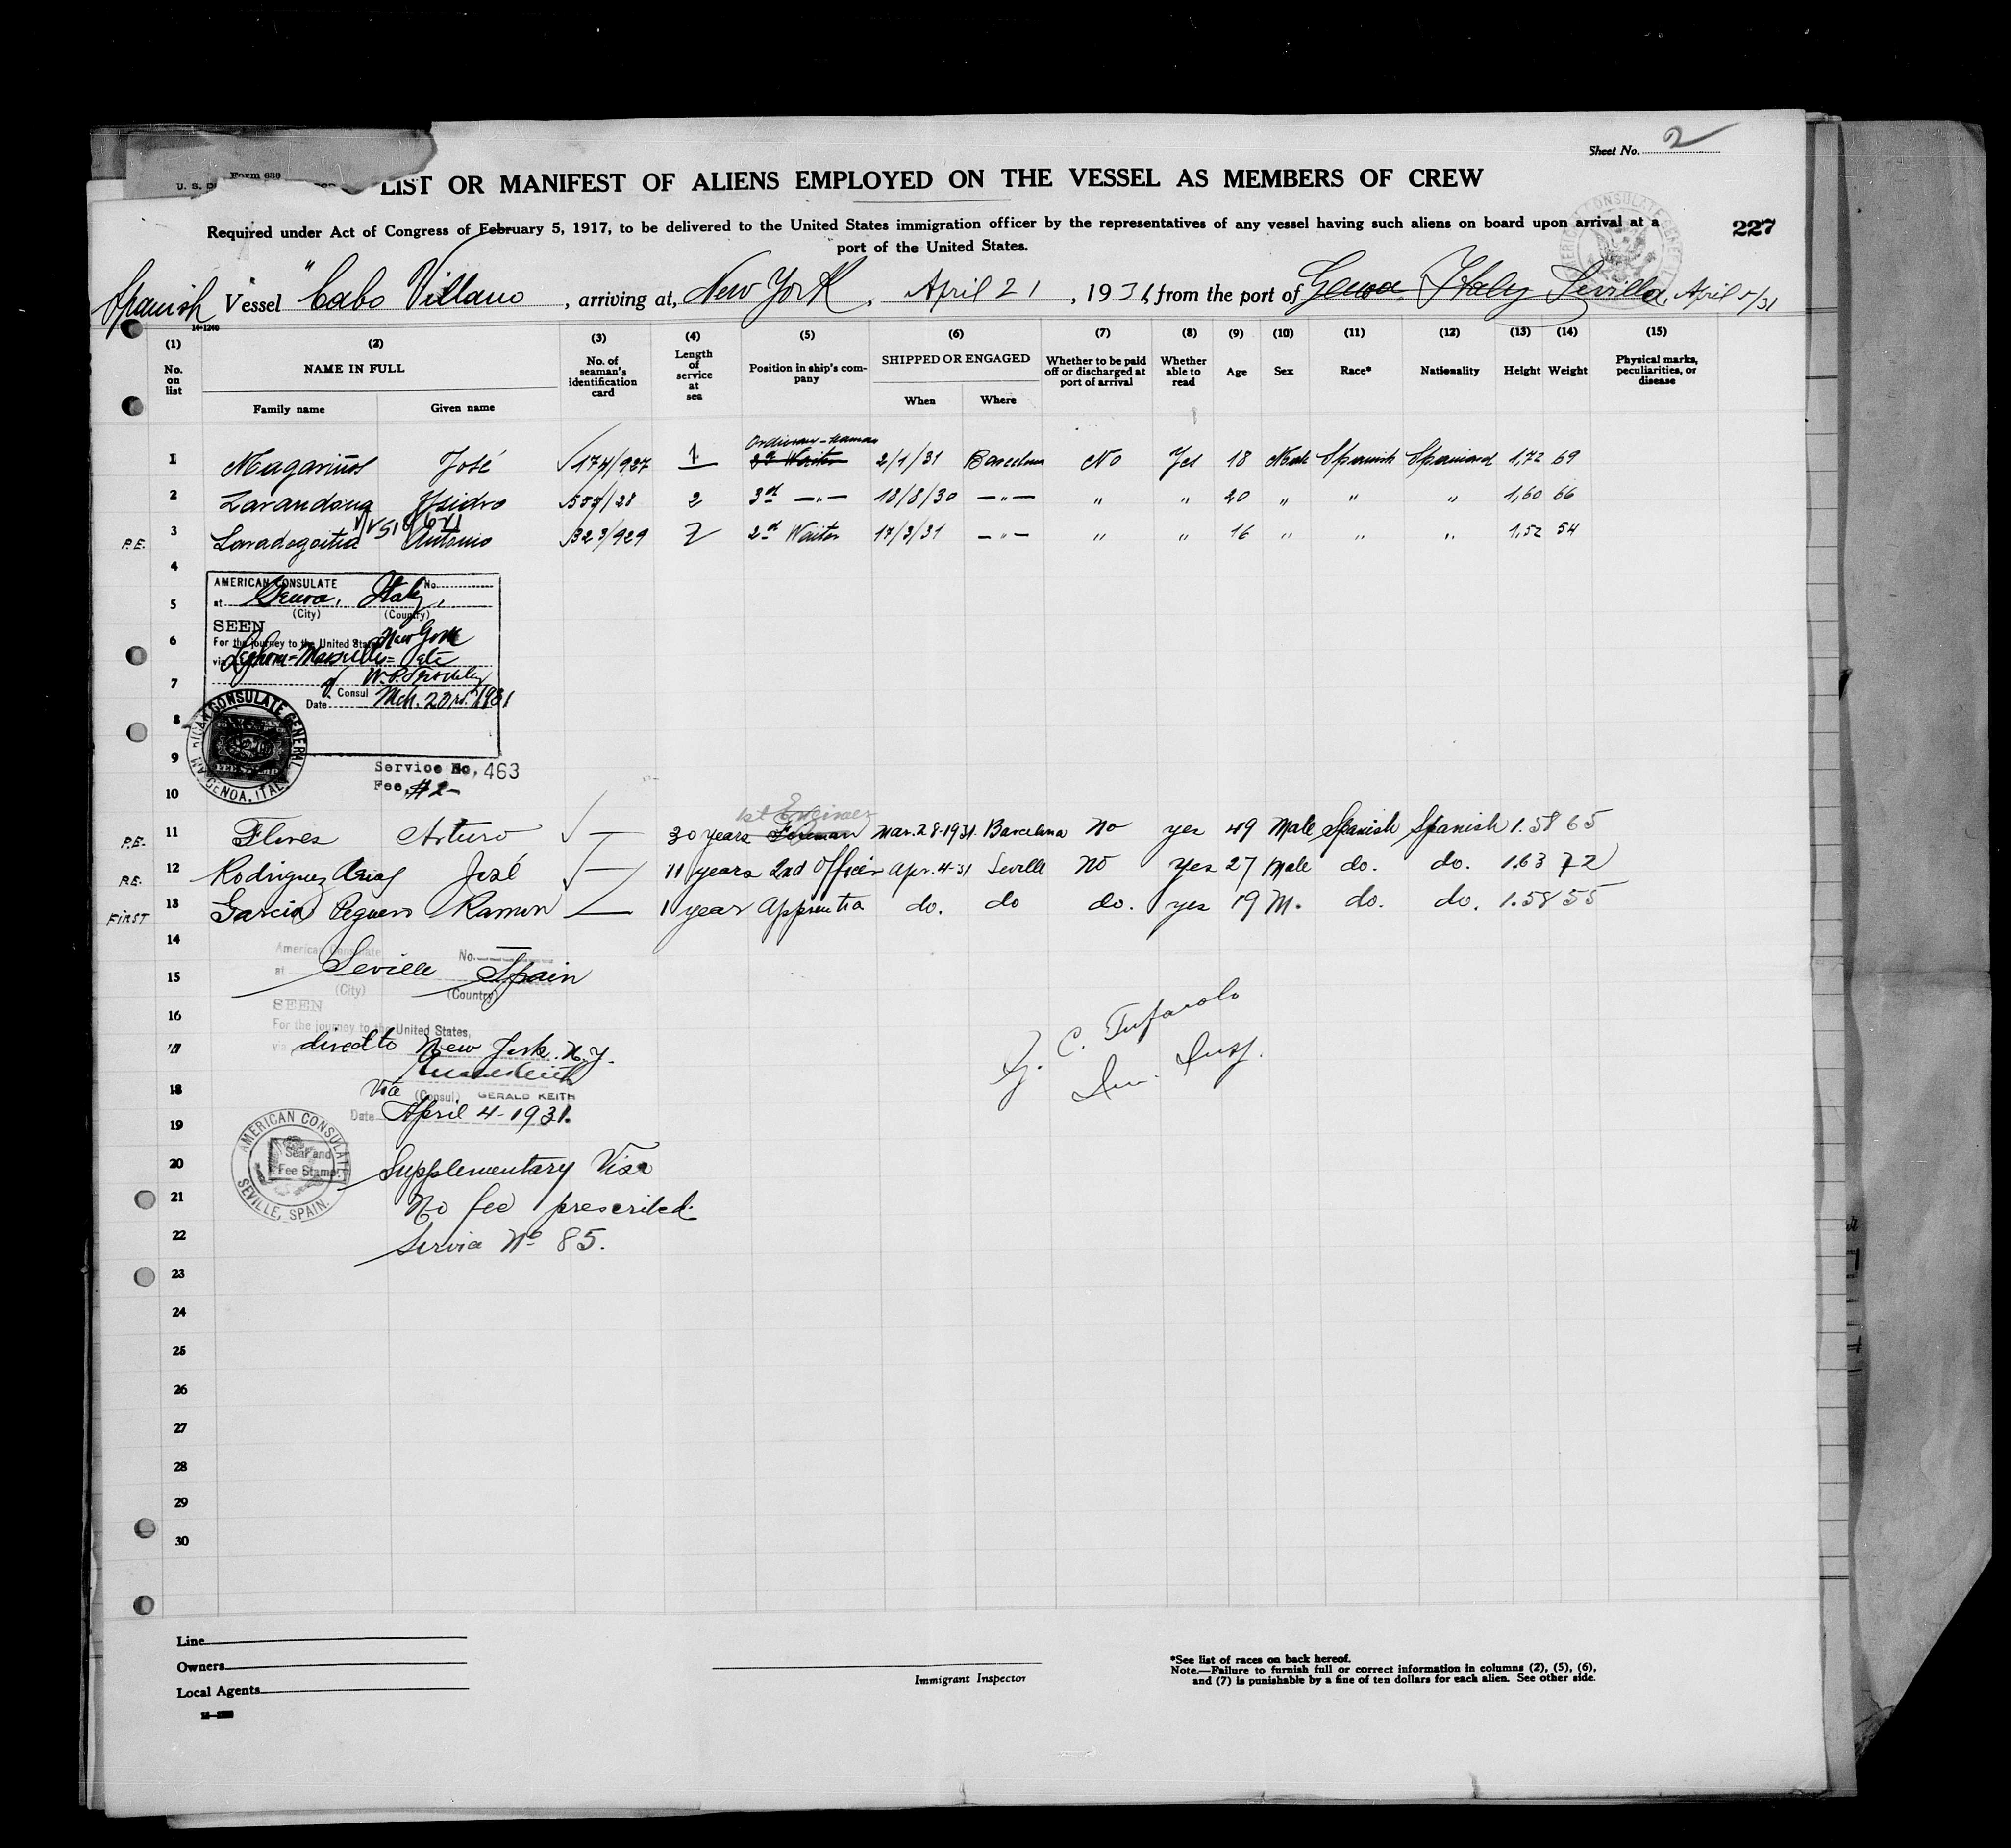 Sheet No. 2
Form 630
U. S. D
LIST OR MANIFEST OF ALIENS EMPLOYED ON THE VESSEL AS MEMBERS OF CREW
Required under Act of Congress of February 5, 1917, to be delivered to the United States immigration officer by the representatives of any vessel having such aliens on board upon arrival at a
port of the United States.
227
Spanish Vessel "Cabo Villano , arriving at, New York , April 21 , 1931, from the port of Genoa, Italy Sevilla, April 5/31
14-1240
(1) (2) (3) (4) (5) (6) (7) (8) (9) (10) (11) (12) (13) (14) (15)
No. on list NAME IN FULL No. of seaman's identification card Length of service at sea Position in ship's company SHIPPED OR ENGAGED Whether to be paid off or discharged at port of arrival Whether able to read Age Sex Race* Nationality Height Weight Physical marks, peculiarities, or disease
Family name Given name When Where
Ordinary-seaman
1 Magariños José 174/927 1 2d Waiter 2/1/31 Barcelona No Yes 18 Male Spanish Spaniard 1,72 69
2 Ysidro 587/28 2 3d —"— 18/8/30 —"— " " 20 " " " 1,60 66
P.E. 3 Antonio 323/929 2 2d Waiter 17/3/31 —"— " " 16 " " " 1,52 54
4
AMERICAN CONSULATE No.
5 at Genoa, Italy,
(City) (Country)
SEEN
6 For the journey to the United States New York
via Leghorn-Marseilles-
7
Consul
Date Mch. 23rd. 1931
8
AMERICAN CONSULATE GENERAL
GENOA, ITALY
9
Service No, 463
Fee, $2-
10
1st Engineer
P.E. 11 Flores Arturo — 30 years Fireman Mar. 28-1931. Barcelona No yes 49 Male Spanish Spanish 1.58 65
P.E. 12 Rodriguez Arias José — 11 years 2nd Officer Apr. 4-31 Seville No yes 27 Male do. do. 1.63 72
FIRST 13 Garcia Peguero Ramon — 1 year Apprentice do. do do. yes 19 M. do. do. 1.58 55
14
American Consulate No.
15 at Seville Spain
(City) (Country)
SEEN
16
For the journey to the United States,
17 via direct to New York. N.Y.
18 Vice (Consul) GERALD KEITH
Date April 4-1931.
19
AMERICAN CONSULATE
SEVILLE, SPAIN.
Seal and
Fee Stamp
20 Supplementary Visa
21 No fee prescribed.
22 Service No 85.
Imm. Insp.
23
24
25
26
27
28
29
30
Line
Owners
Local Agents
Immigrant Inspector
*See list of races on back hereof.
Note.—Failure to furnish full or correct information in columns (2), (5), (6),
and (7) is punishable by a fine of ten dollars for each alien. See other side.